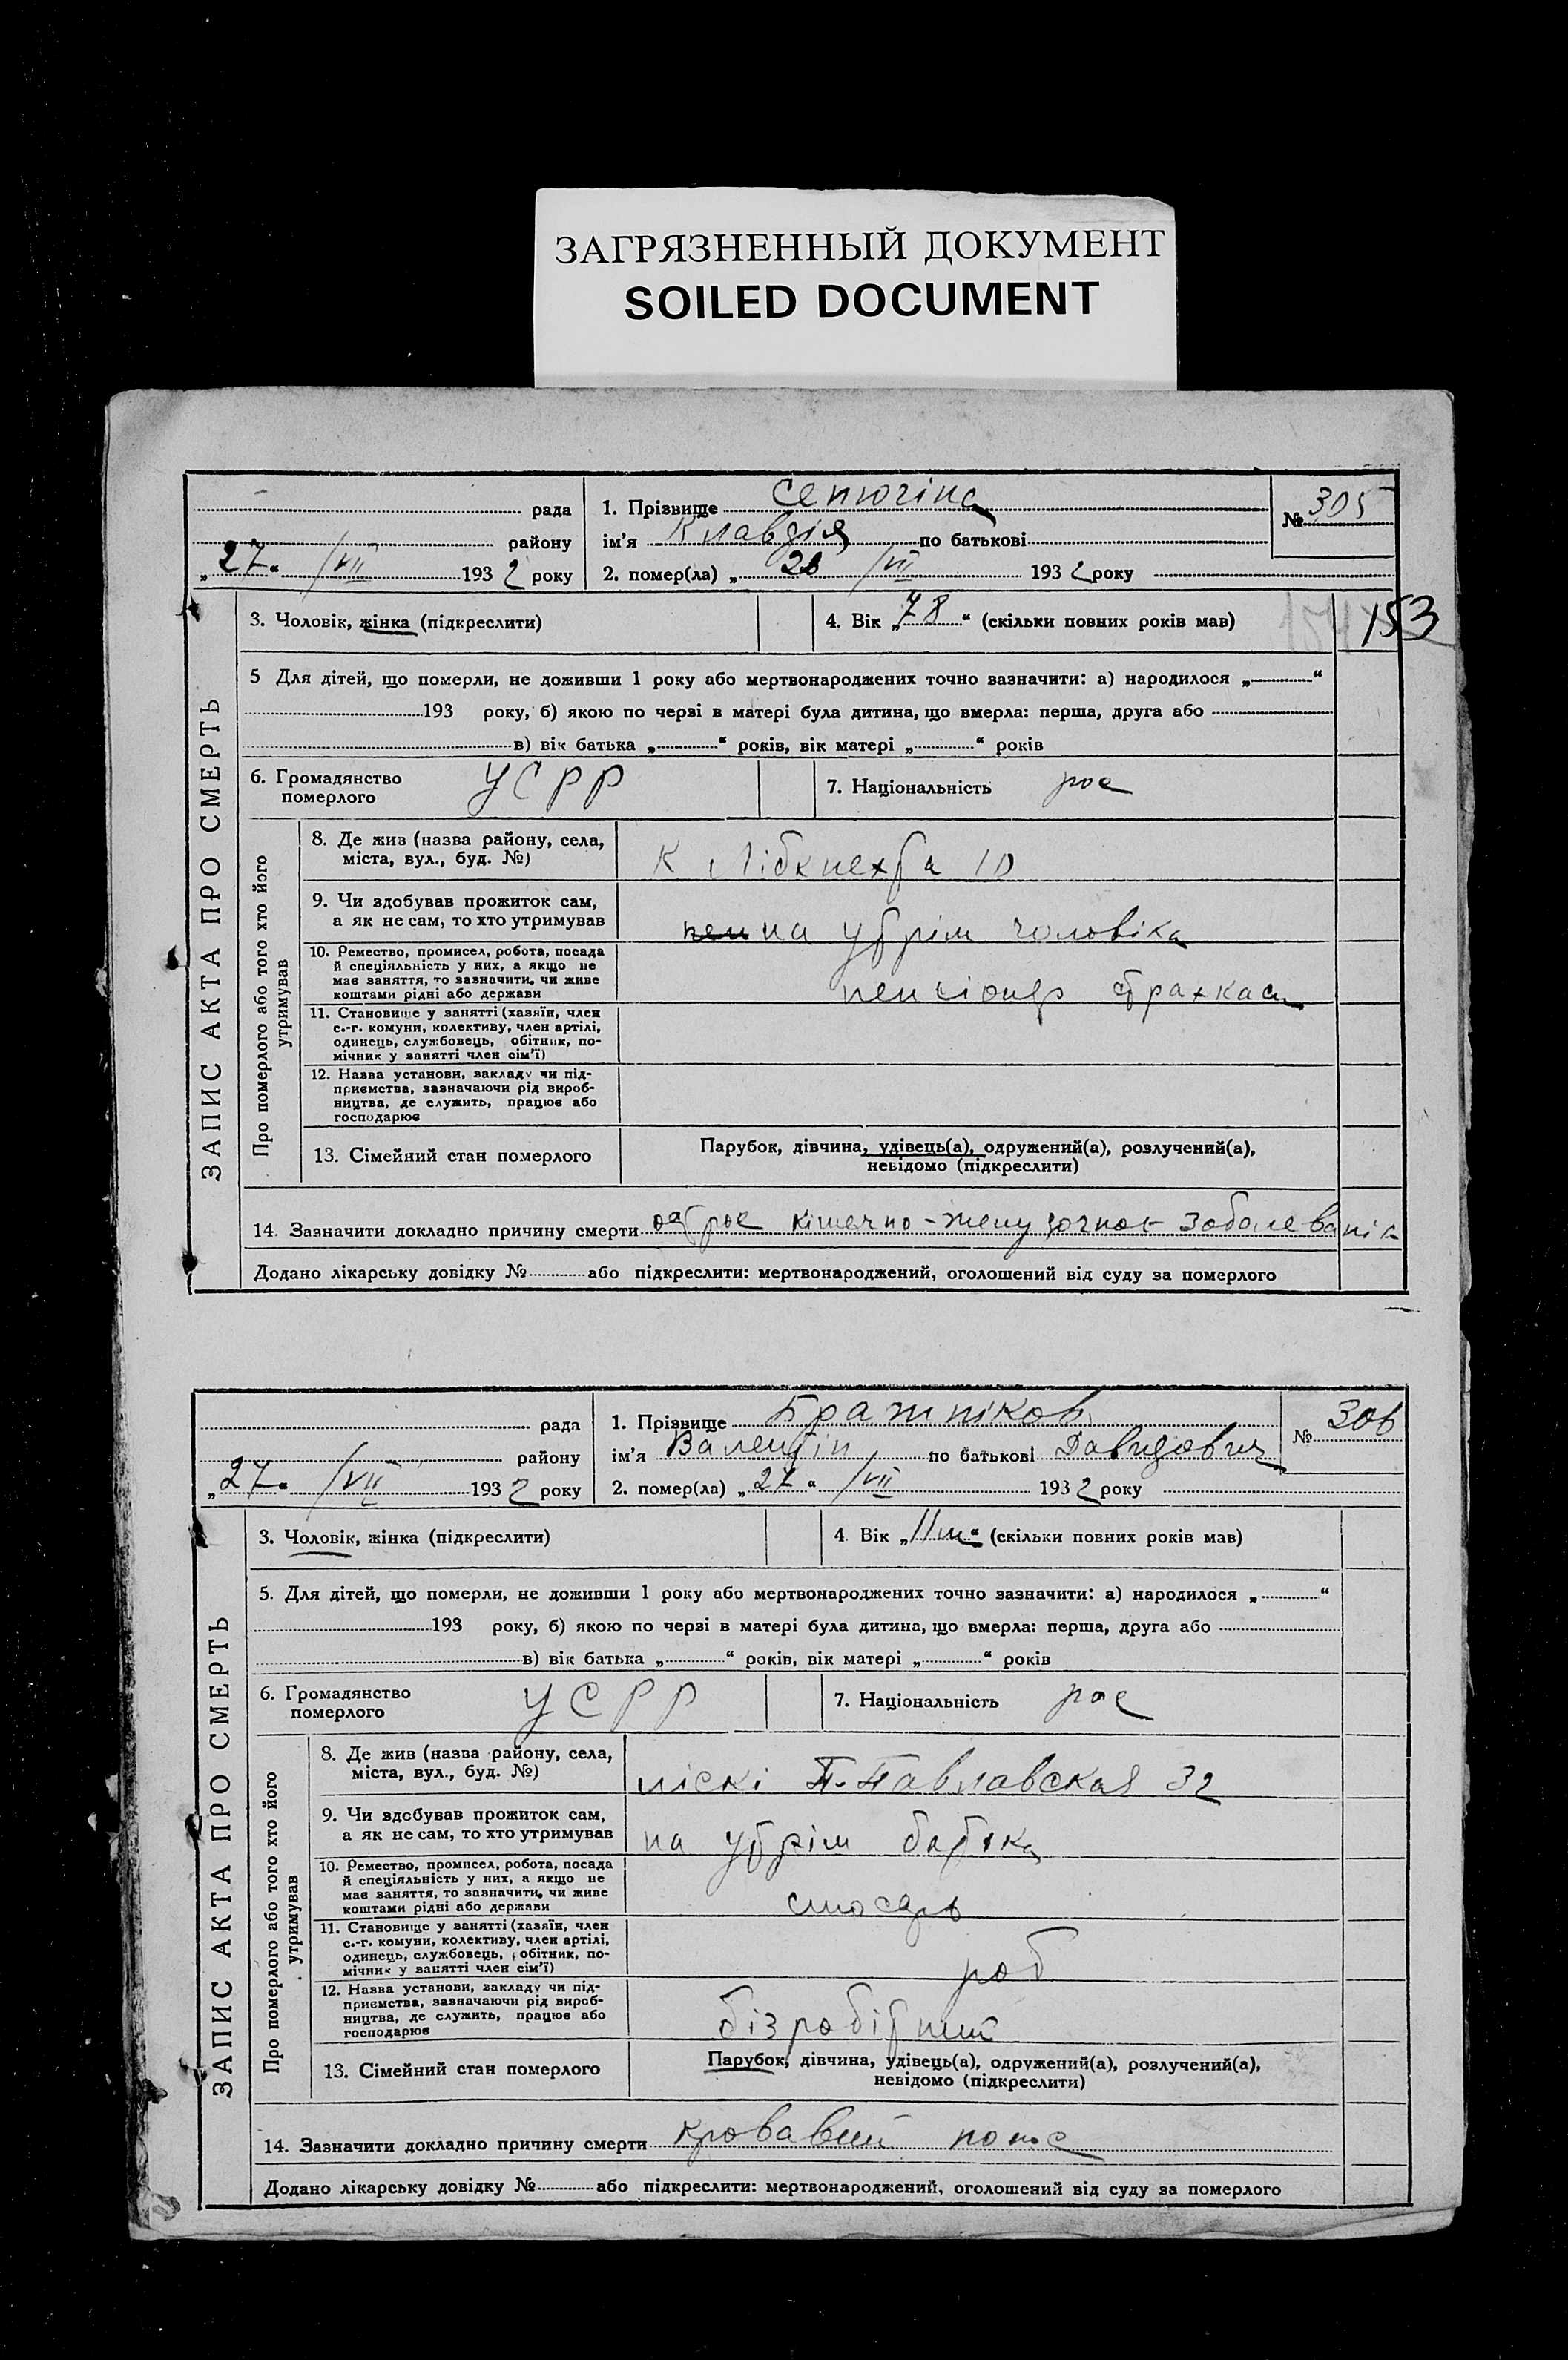 ЗАГРЯЗНЕННЫЙ ДОКУМЕНТ
SOILED DOCUMENT
рада
району
„27“ /VII 1932 року
1. Прізвище
ім’я Клавдія по батькові
2. помер(ла) „26 /VII 1932 року
№ 305
3. Чоловік, жінка (підкреслити)
4. Вік „78“ (скільки повних років мав)
153
5 Для дітей, що померли, не доживши 1 року або мертвонароджених точно зазначити: а) народилося „ “
193 року, б) якою по черзі в матері була дитина, що вмерла: перша, друга або
в) вік батька „ “ років, вік матері „ “ років
6. Громадянство
померлого
УСРР
7. Національність рос
ЗАПИС АКТА ПРО СМЕРТЬ
Про померлого або того хто його
утримував
8. Де жив (назва району, села,
міста, вул., буд. №)
К Лібкнехта 10
9. Чи здобував прожиток сам,
а як не сам, то хто утримував
на утрім чоловіка
10. Ремество, промисел, робота, посада
й спеціяльність у них, а якщо не
має заняття, то зазначити, чи живе
коштами рідні або держави
пенсіонер страхкаси
11. Становище у занятті (хазяїн, член
с.-г. комуни, колективу, член артілі,
одинець, службовець, обітник, по-
мічник у занятті член сім’ї)
12. Назва установи, закладу чи під-
приємства, зазначаючи рід вироб-
ництва, де служить, працює або
господарює
13. Сімейний стан померлого
Парубок, дівчина, удівець(а), одружений(а), розлучений(а),
невідомо (підкреслити)
14. Зазначити докладно причину смерти острое кішечно-желудочное заболеваніе
Додано лікарську довідку № або підкреслити: мертвонароджений, оголошений від суду за померлого
рада
району
„27“ /VII 1932 року
1. Прізвище Бражніков
ім’я Валентін по батькові Давидович
2. помер(ла) „27“ /VII 1932 року
№ 306
3. Чоловік, жінка (підкреслити)
4. Вік „11м“ (скільки повних років мав)
5. Для дітей, що померли, не доживши 1 року або мертвонароджених точно зазначити: а) народилося „ “
193 року, б) якою по черзі в матері була дитина, що вмерла: перша, друга або
в) вік батька „ “ років, вік матері „ “ років
6. Громадянство
померлого
УСРР
7. Національність рос
ЗАПИС АКТА ПРО СМЕРТЬ
Про померлого або того хто його
утримував
8. Де жив (назва району, села,
міста, вул., буд. №)
піскі П-Павловская 32
9. Чи здобував прожиток сам,
а як не сам, то хто утримував
на утрім батька
10. Ремество, промисел, робота, посада
й спеціяльність у них, а якщо не
має заняття, то зазначити, чи живе
коштами рідні або держави
слюсарь
11. Становище у занятті (хазяїн, член
с.-г. комуни, колективу, член артілі,
одинець, службовець, обітник, по-
мічник у занятті член сім’ї)
роб
12. Назва установи, закладу чи під-
приємства, зазначаючи рід вироб-
ництва, де служить, працює або
господарює
бізробітний
13. Сімейний стан померлого
Парубок, дівчина, удівець(а), одружений(а), розлучений(а),
невідомо (підкреслити)
14. Зазначити докладно причину смерти кровавий понос
Додано лікарську довідку № або підкреслити: мертвонароджений, оголошений від суду за померлого